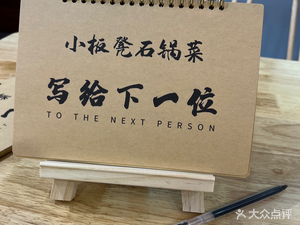 小板凳石锅菜
写给下一位
TO THE NEXT PERSON
大众点评